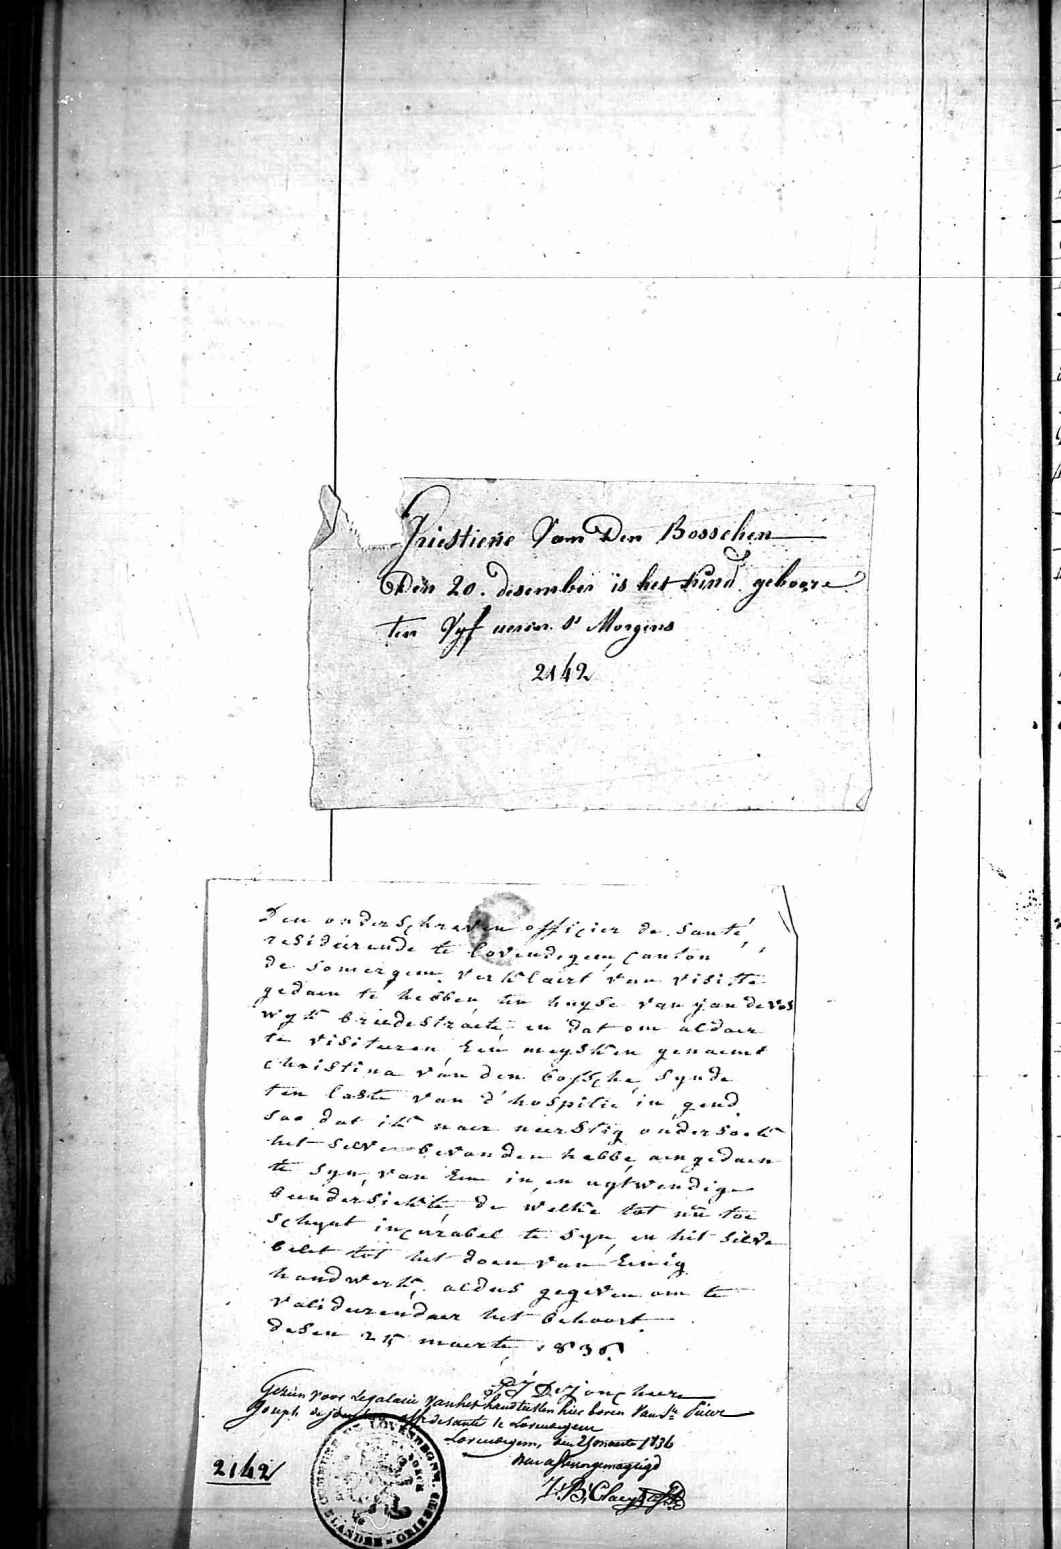 Kriestiene Van Den Bosschen
Den 20. desember is het kind geboore
ten Vyf ueren s' Morgens
2142
Den onderschreven officier de santé,
resideérende te lovendegem, canton
de somergem verklaert van visite
gedaen te hebben ten huyse van jan de vos
wyk briedestraete, en dat om aldaer
te visiteren Een meysken genaemt
christina van den bossche, synde
ten laste van d'hospitie in gend
soo dat ik naer neerstig ondersoek
het selve bevonden hebbe aengedaen
te syn, van Een in en uytwendige
beendersiekte, de welke tot nu toe
schynt incurabel te syn, en het selve
belet tot het doen van Eenig
handwerk, aldus gegeven om te
valideerendaer het behoort
desen 25 maerte 1836
P J De Jonghere
Gezien voor Legalisatie van het handteeken hier boven van Sr Pieter
Joseph de jonghere off. de santé te Lovendegem
Lovendegem, den 25 maerte 1836
J. B. Claeys
2142
COMMUNE DE LOVENDEGEM.
FLANDRE - ORIENTALE